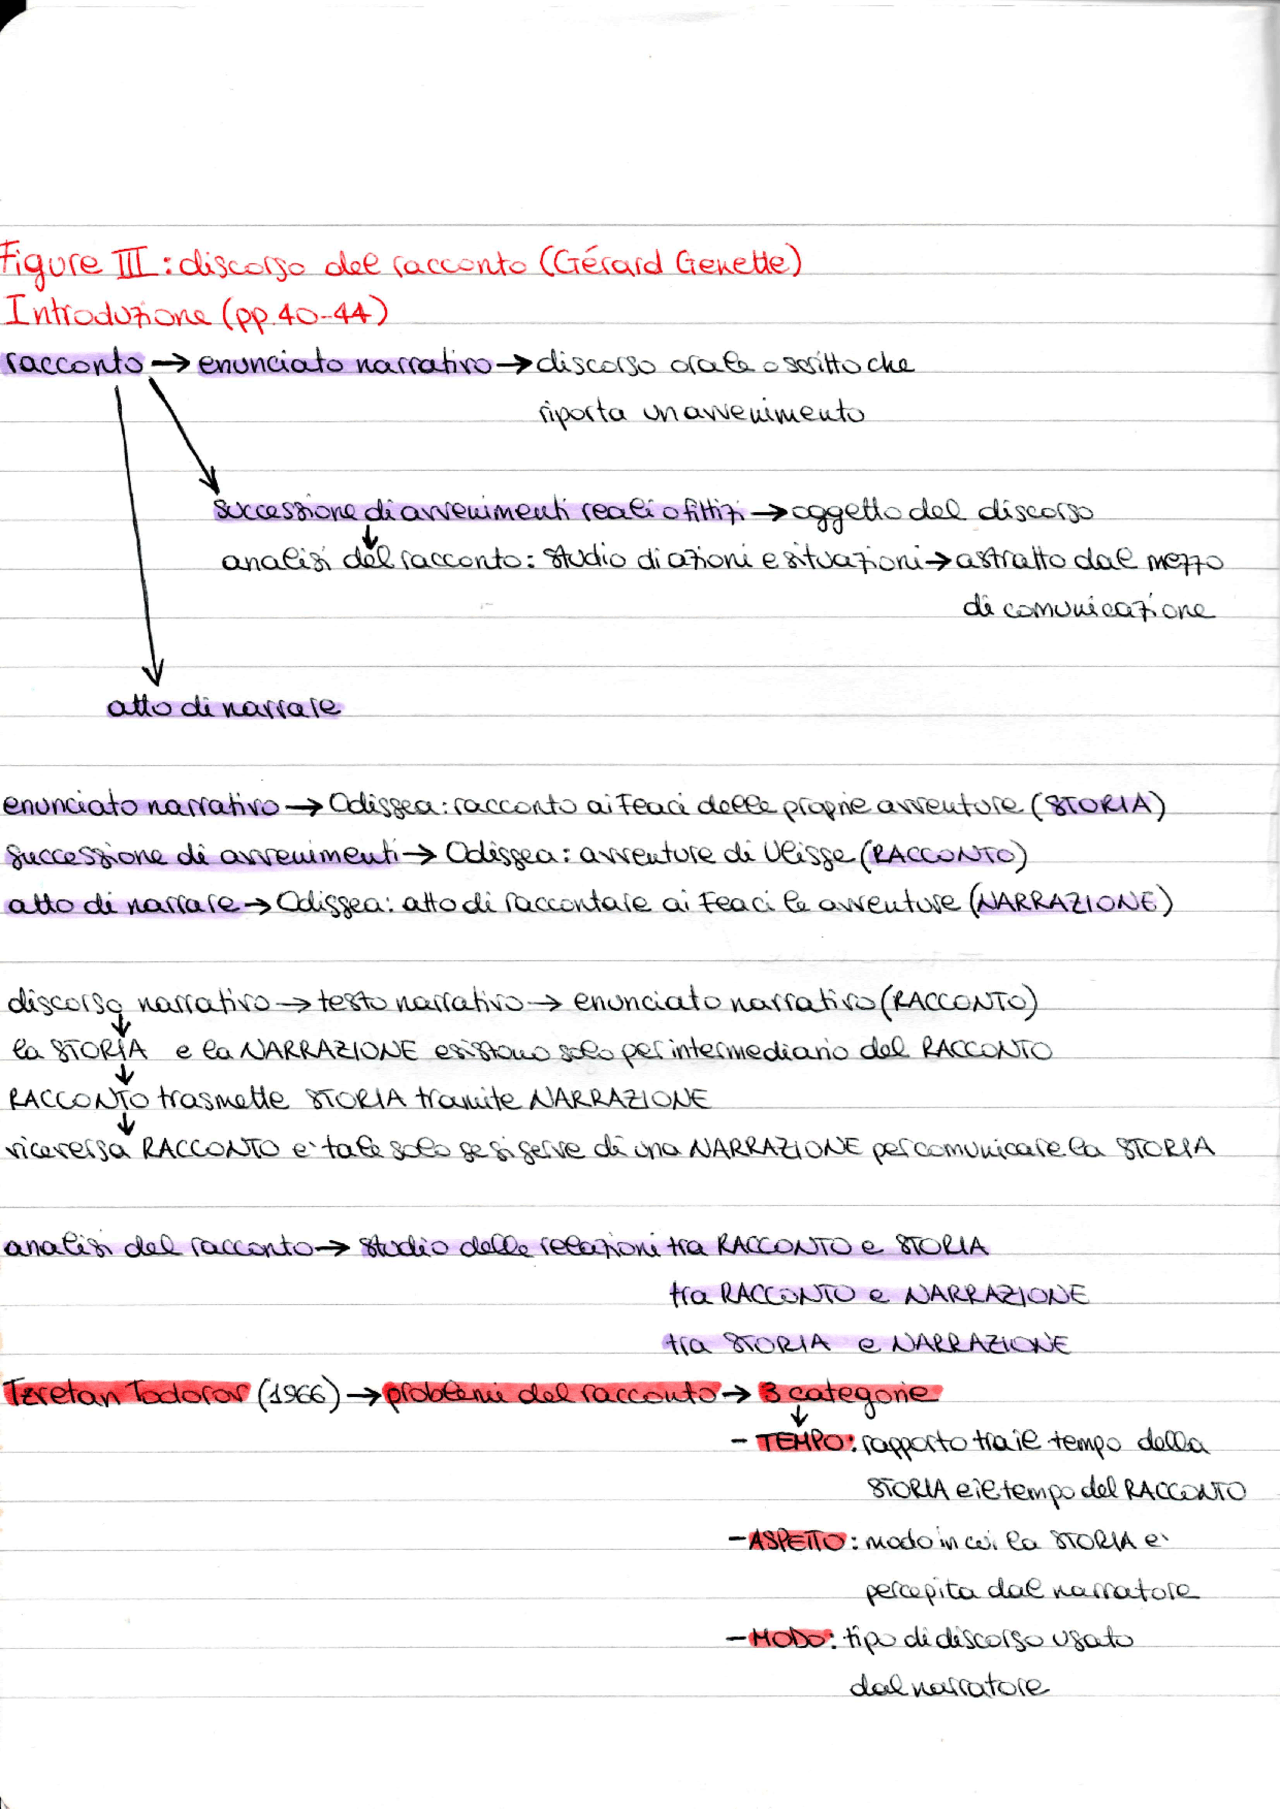 Figure III: discorso del racconto (Gérard Genette)
Introduzione (pp. 40-44)
racconto → enunciato narrativo → discorso orale o scritto che
riporta un avvenimento
successione di avvenimenti reali o fittizi → oggetto del discorso
↓
analisi del racconto: studio di azioni e situazioni → astratto dal mezzo
di comunicazione
atto di narrare
enunciato narrativo → Odissea: racconto ai Feaci delle proprie avventure (STORIA)
successione di avvenimenti → Odissea: avventure di Ulisse (RACCONTO)
atto di narrare → Odissea: atto di raccontare ai Feaci le avventure (NARRAZIONE)
discorso narrativo → testo narrativo → enunciato narrativo (RACCONTO)
↓
la STORIA e la NARRAZIONE esistono solo per intermediario del RACCONTO
↓
RACCONTO trasmette STORIA tramite NARRAZIONE
↓
viceversa RACCONTO e' tale solo se si serve di una NARRAZIONE per comunicare la STORIA
analisi del racconto → studio delle relazioni tra RACCONTO e STORIA
tra RACCONTO e NARRAZIONE
tra STORIA e NARRAZIONE
Tzvetan Todorov (1966) → problemi del racconto → 3 categorie
↓
- TEMPO: rapporto tra il tempo della
STORIA e il tempo del RACCONTO
- ASPETTO: modo in cui la STORIA e'
percepita dal narratore
- MODO: tipo di discorso usato
dal narratore